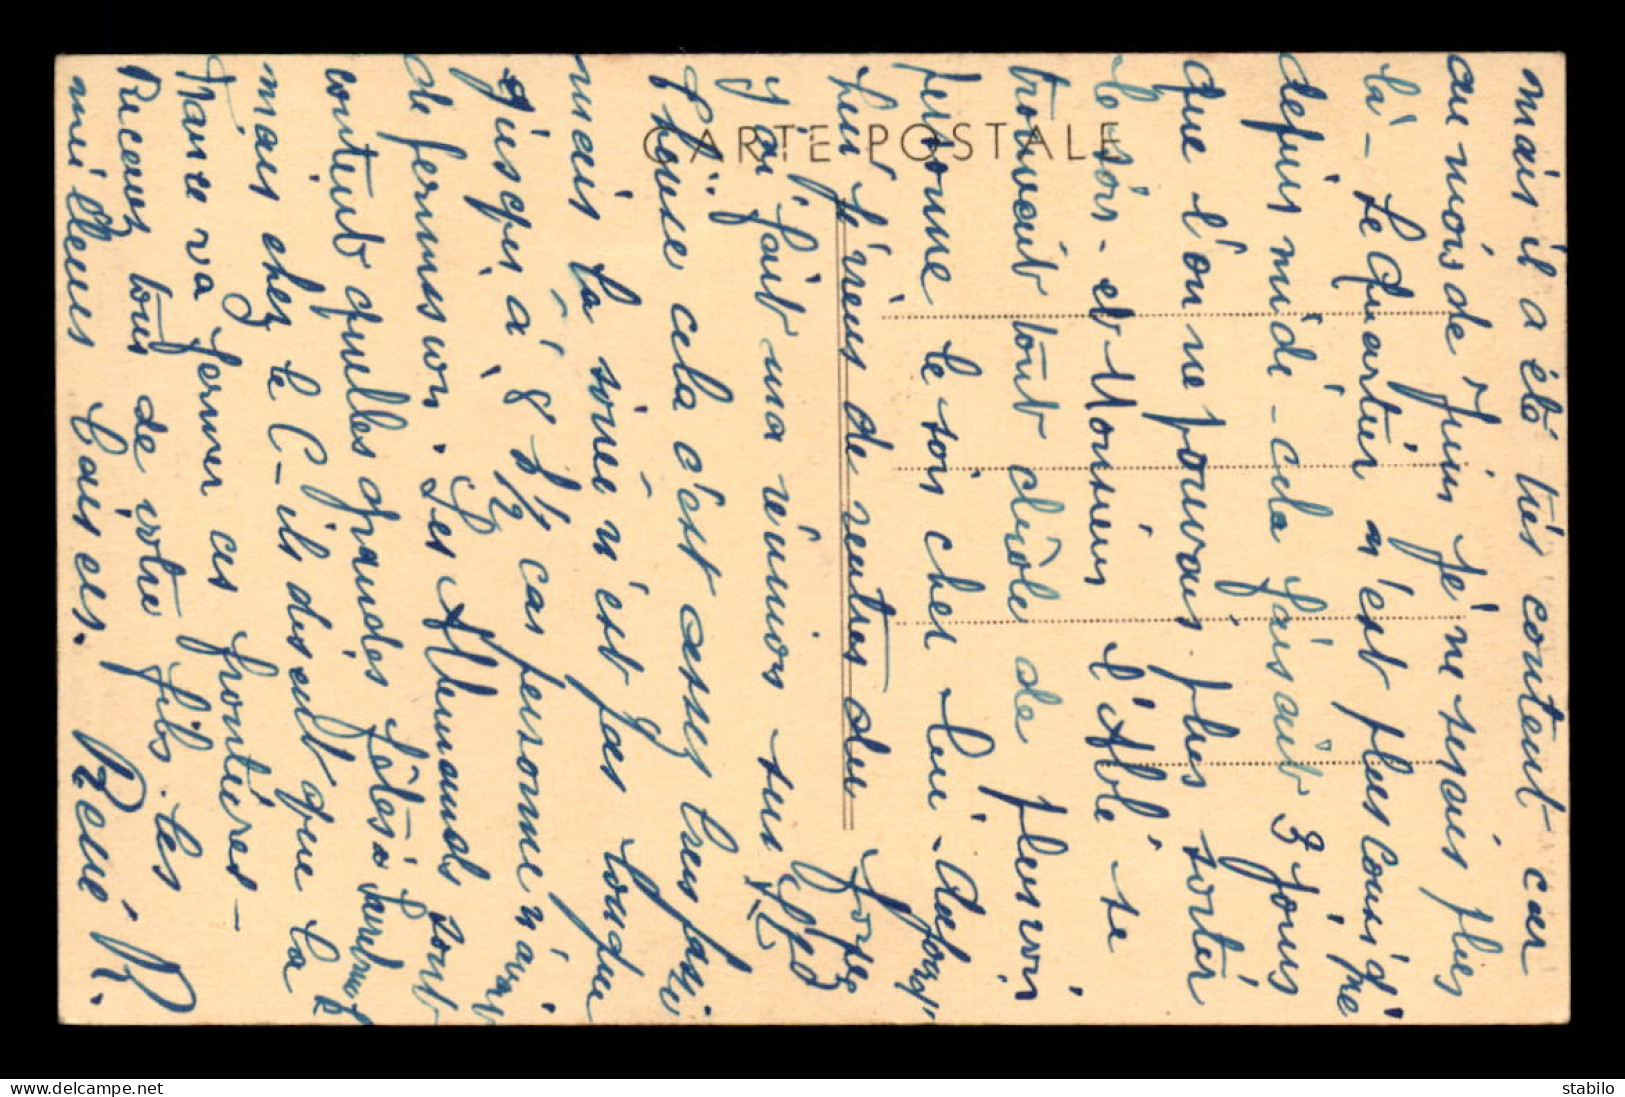 mais il a été très content car
au mois de Juin je ne serais plus
là - Le Quartier n'est plus consigné
depuis midi - cela faisait 3 jours
que l'on ne pouvais plus sortir
le soir - et Monsieur l'Abbé se
trouvait tout drôle de plus voir
personne le soir chez lui - Aujourd'
hui je viens de rentrer du foyer
j'ai fait ma réunion sur
Pse cela c'est assez bien passé
mais la soirée n'est pas longue
jusqu'à 8 h 1/2 car personne n'avait
de permission. Les Allemands sont
content quelles grandes fêtes à
mais chez le C - ils disent que la
France va fermer ces frontières -
Recevez tous de votre fils les
meilleurs baisers. René R.
CARTE POSTALE
stabilo
https://www.delcampe.net